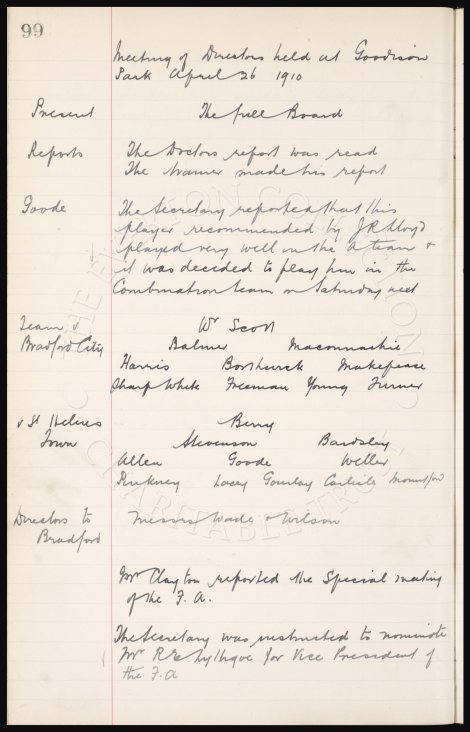 99
Meeting of Directors held at Goodison
Park April 26 1910
Present The full Board
Reports The Doctors report was read
The trainer made his report
Goode The Secretary reported that this
player recommended by J R Lloyd
played very well in the A team &
it was decided to play him in the
Combination team on Saturday next
Team v Wr Scott
Bradford City Balmer Maconnachie
Harris Borthwick Makepeace
Sharp White Freeman Young Turner
v St Helens Berry
Town Stevenson Bardsley
Allen Goode Weller
Pinkney Lacey Gourlay Carlisle Mountford
Directors to Messrs Wade & Wilson
Bradford
Mr Clayton reported the Special meeting
of the F.A.
The Secretary was instructed to nominate
Mr R E for Vice President of
the F.A
THE EVERTON CO
CHARITABLE TRUST